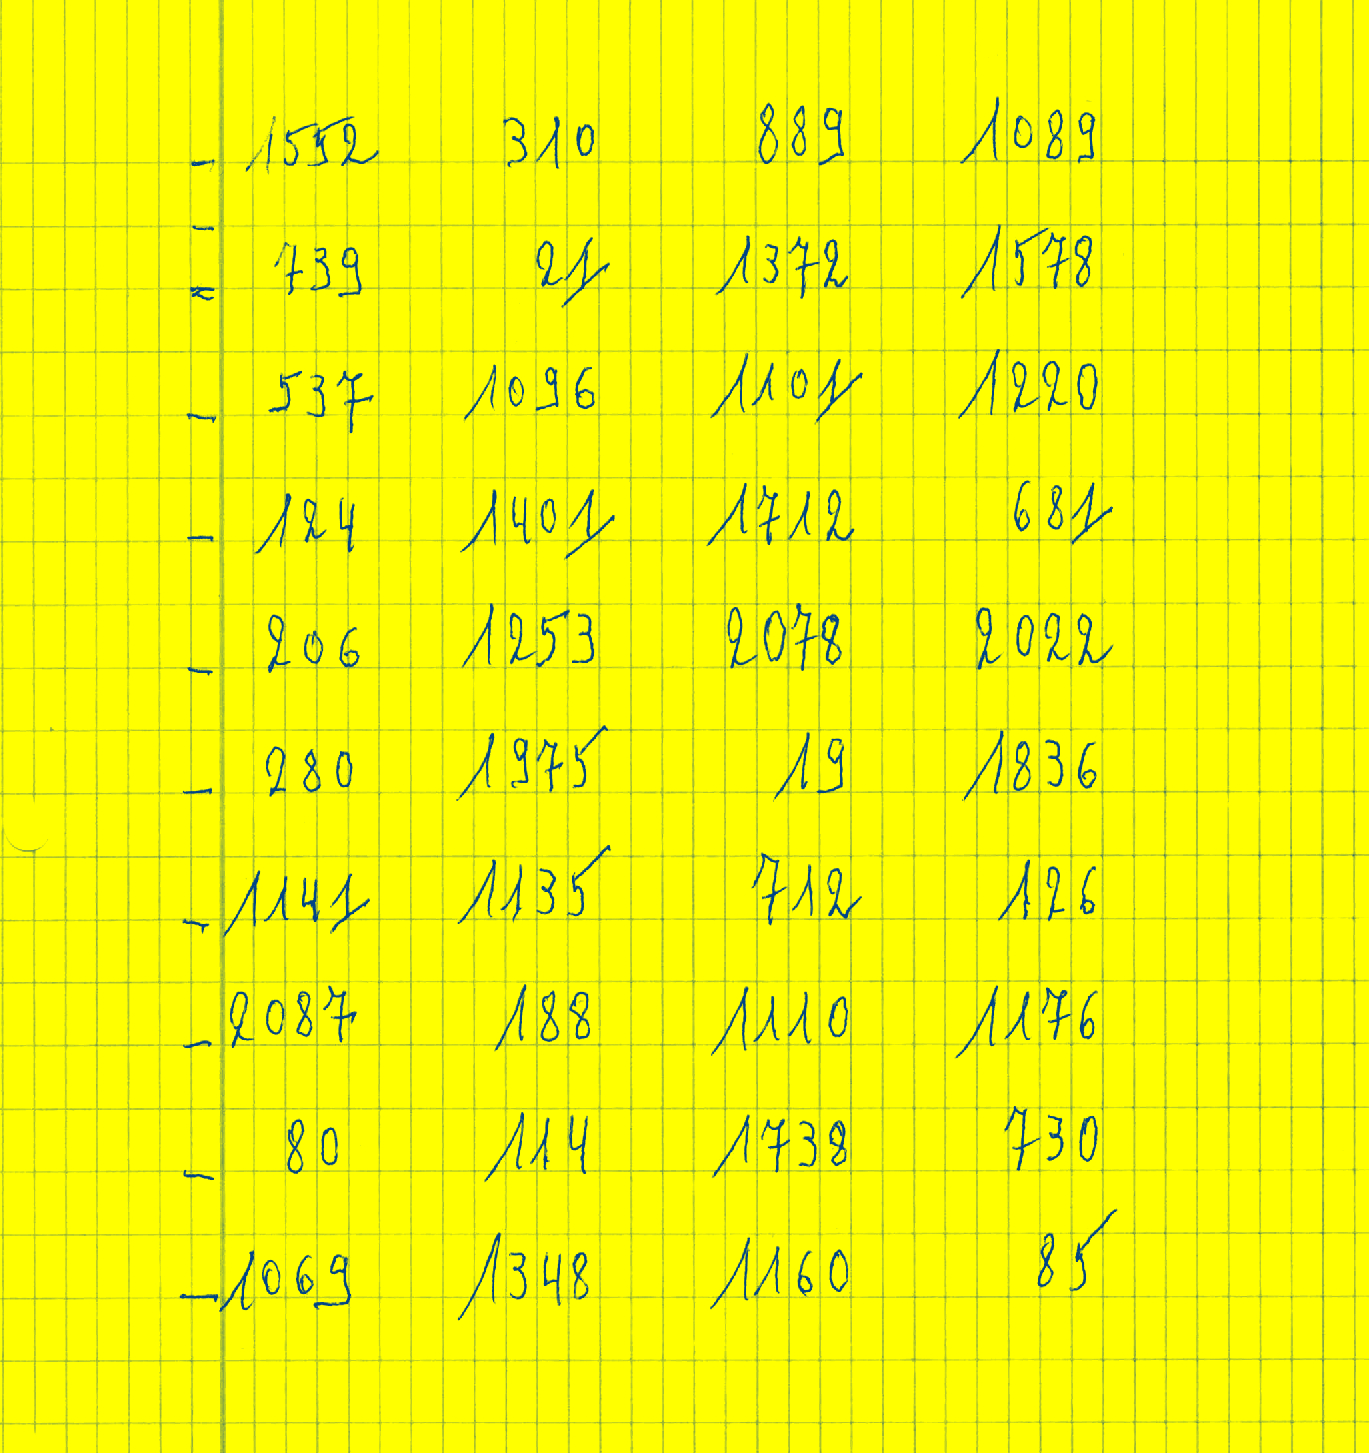 1552 310 889 1089
739 21 1372 1578
537 1096 1101 1220
124 1401 1712 681
206 1253 2078 2022
280 1975 19 1836
1141 1135 712 126
2087 188 1110 1176
80 114 1738 730
1069 1348 1160 85